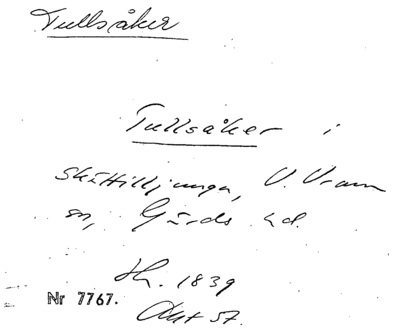 Tullsåker
Tullsåker i
Skättilljunga, V. Vram
sn, Gärds hd.
Sk. 1839
Akt 57.
Nr 7767.